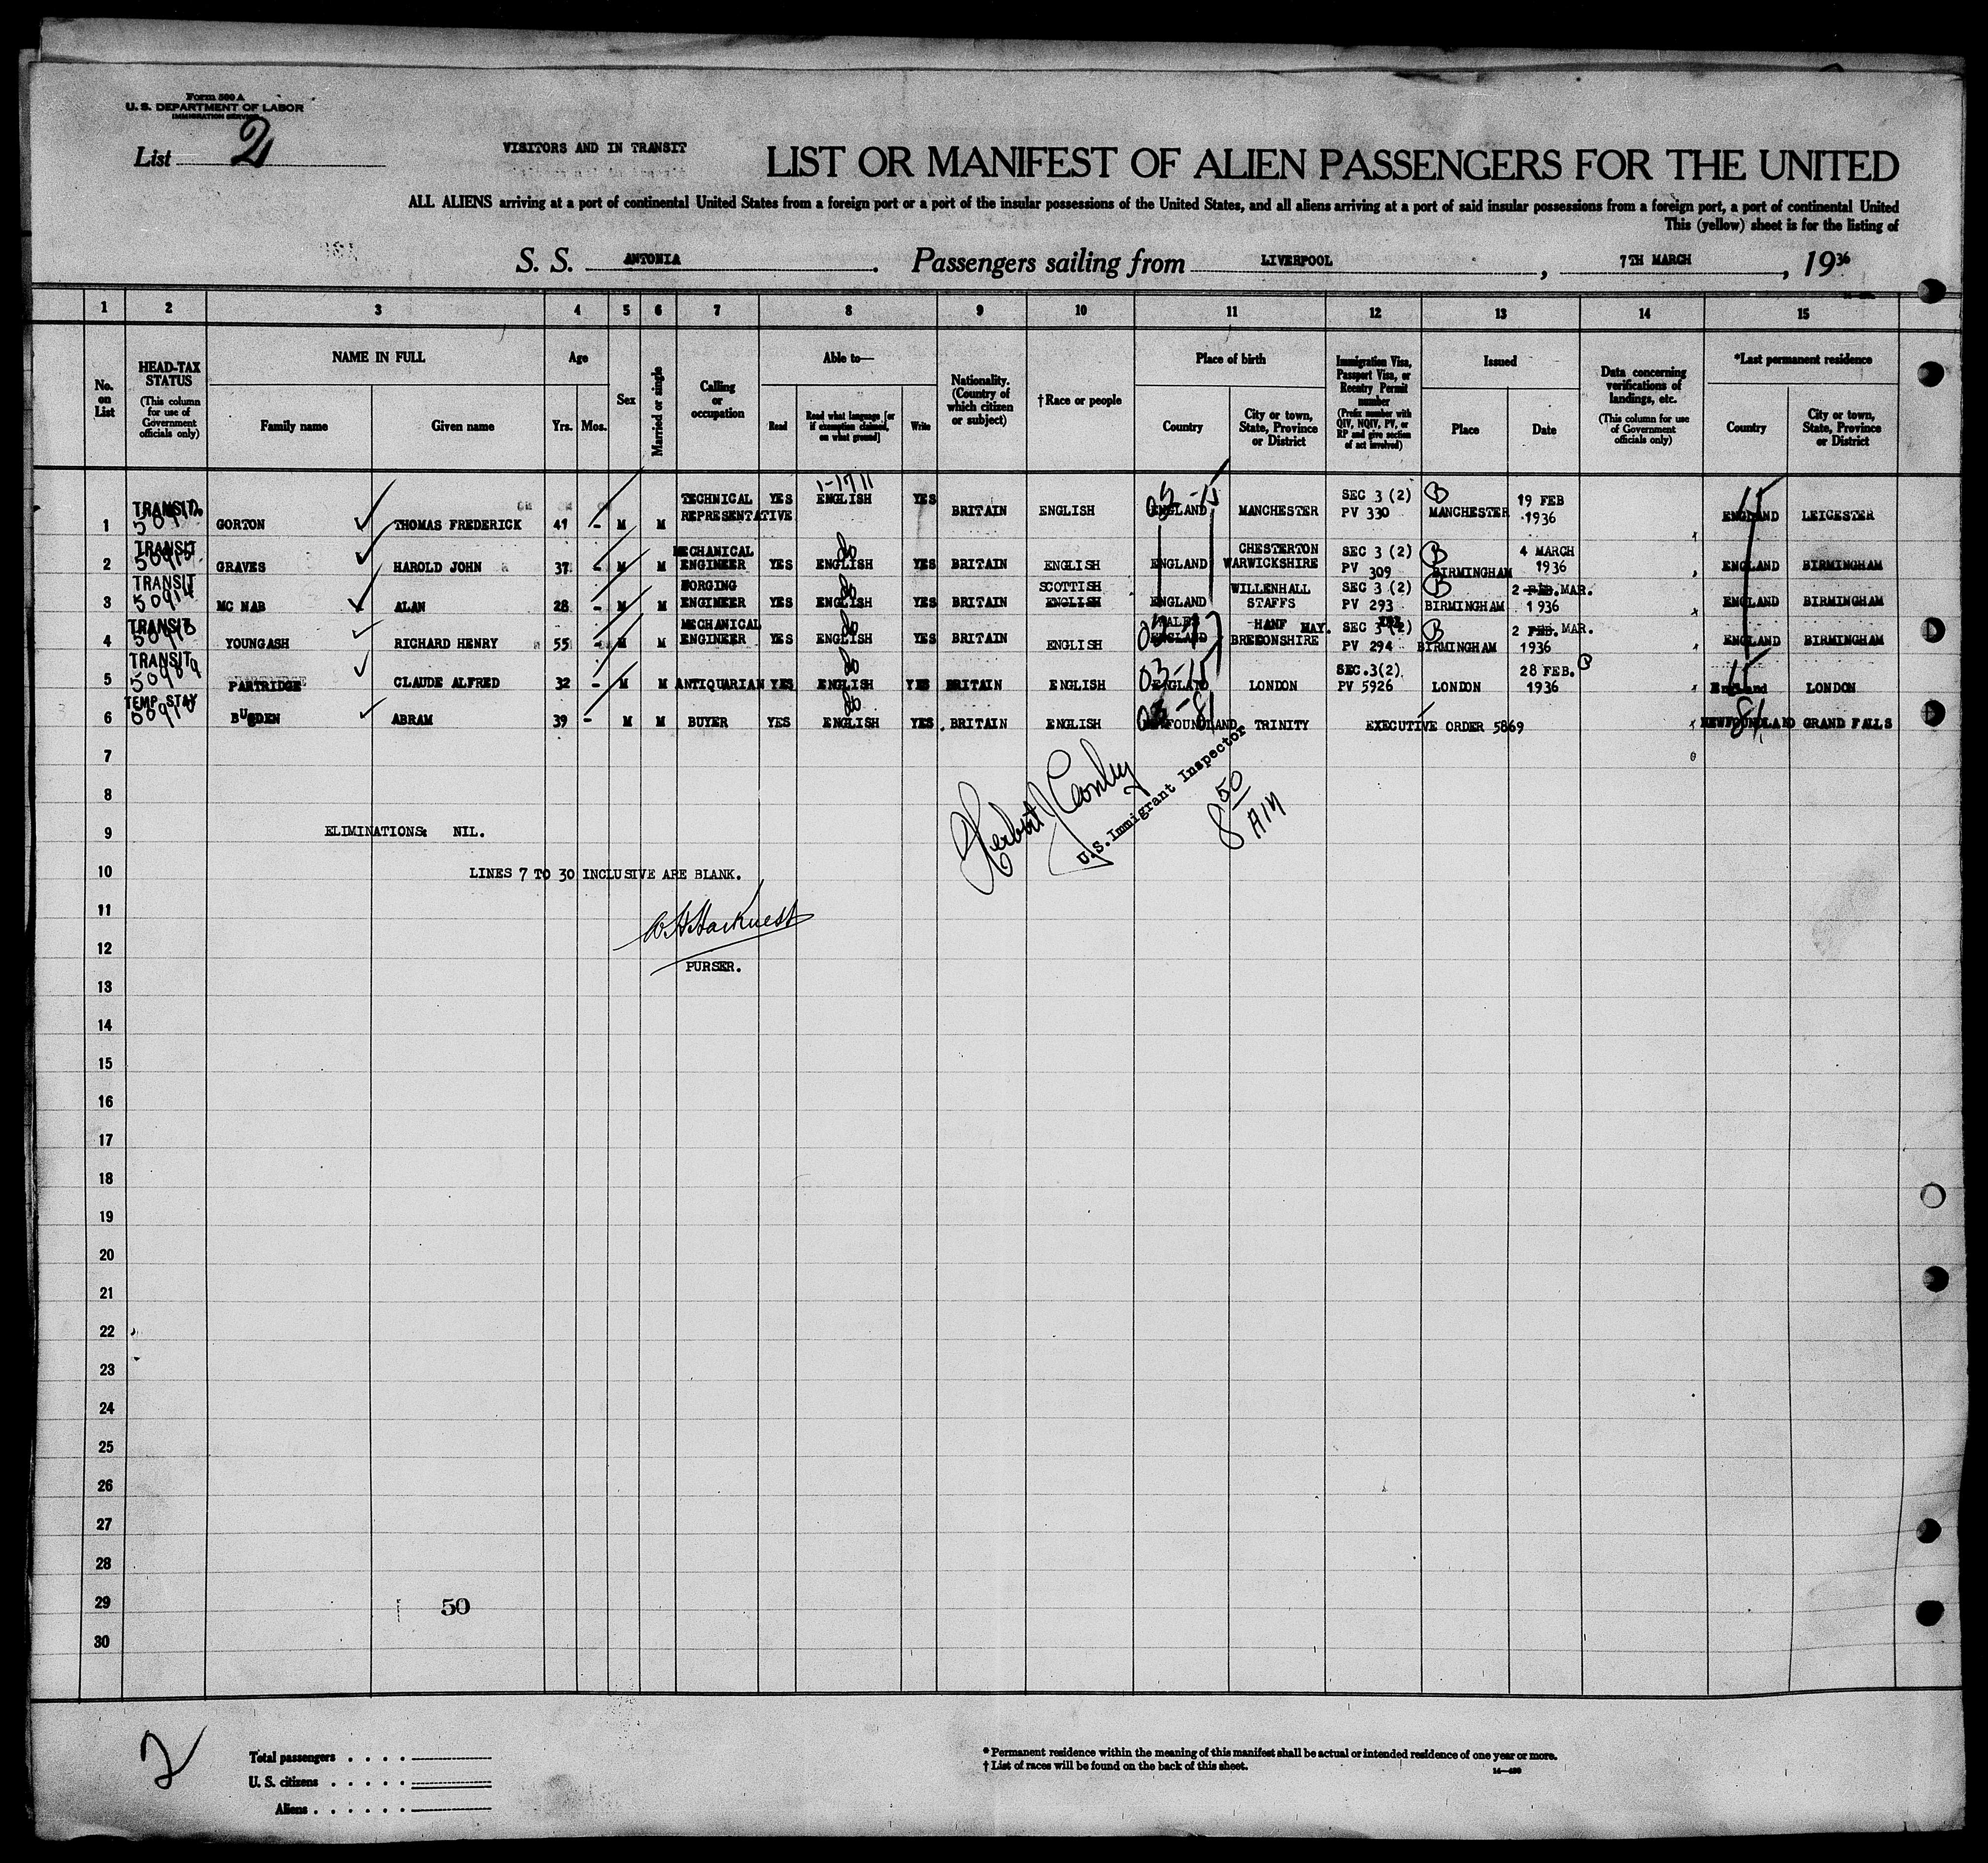 Form 500 A
U. S. DEPARTMENT OF LABOR
IMMIGRATION SERVICE
List 2
VISITORS AND IN TRANSIT
LIST OR MANIFEST OF ALIEN PASSENGERS FOR THE UNITED
ALL ALIENS arriving at a port of continental United States from a foreign port or a port of the insular possessions of the United States, and all aliens arriving at a port of said insular possessions from a foreign port, a port of continental United
This (yellow) sheet is for the listing of
S. S. ANTONIA. Passengers sailing from LIVERPOOL, 7TH MARCH, 1936
1 2 3 4 5 6 7 8 9 10 11 12 13 14 15
No. on List
HEAD-TAX STATUS
(This column for use of Government officials only)
NAME IN FULL
Family name Given name
Age
Yrs. Mos.
Sex
Married or single
Calling or occupation
Able to—
Read Read what language [or if exemption claimed, on what ground] Write
Nationality. (Country of which citizen or subject)
†Race or people
Place of birth
Country City or town, State, Province or District
Immigration Visa, Passport Visa, or Reentry Permit number
(Prefix number with QIV, NQIV, PV, or RP and give section of act involved)
Issued
Place Date
Data concerning verifications of landings, etc.
(This column for use of Government officials only)
*Last permanent residence
Country City or town, State, Province or District
1 TRANSIT GORTON THOMAS FREDERICK 41 - M M TECHNICAL REPRESENTATIVE YES ENGLISH YES BRITAIN ENGLISH ENGLAND MANCHESTER SEC 3 (2) PV 330 MANCHESTER 19 FEB 1936 ENGLAND LEICESTER
2 TRANSIT GRAVES HAROLD JOHN 37 - M M MECHANICAL ENGINEER YES ENGLISH YES BRITAIN ENGLISH ENGLAND CHESTERTON WARWICKSHIRE SEC 3 (2) PV 309 BIRMINGHAM 4 MARCH 1936 ENGLAND BIRMINGHAM
3 TRANSIT MC NAB ALAN 28 - M M FORGING ENGINEER YES ENGLISH YES BRITAIN SCOTTISH ENGLISH ENGLAND WILLENHALL STAFFS SEC 3 (2) PV 293 BIRMINGHAM 2 FEB. MAR. 1936 ENGLAND BIRMINGHAM
4 TRANSIT YOUNGASH RICHARD HENRY 55 - M M MECHANICAL ENGINEER YES ENGLISH YES BRITAIN ENGLISH WALES ENGLAND BRECONSHIRE SEC 3 (2) PV 294 BIRMINGHAM 2 FEB. MAR. 1936 ENGLAND BIRMINGHAM
5 TRANSIT PARTRIDGE CLAUDE ALFRED 32 - M M ANTIQUARIAN YES ENGLISH YES BRITAIN ENGLISH 03-15 ENGLAND LONDON SEC.3(2) PV 5926 LONDON 28 FEB. 1936 England LONDON
6 TEMP STAY BUGDEN ABRAM 39 - M M BUYER YES ENGLISH YES BRITAIN ENGLISH NEWFOUNDLAND TRINITY EXECUTIVE ORDER 5869 NEWFOUNDLAND GRAND FALLS
7
8
Herbert J Conley
U.S. Immigrant Inspector
8 50 AM
9 ELIMINATIONS: NIL.
10 LINES 7 TO 30 INCLUSIVE ARE BLANK.
11
12
PURSER.
13
14
15
16
17
18
19
20
21
22
23
24
25
26
27
28
29 50
30
2
Total passengers
U. S. citizens
Aliens
* Permanent residence within the meaning of this manifest shall be actual or intended residence of one year or more.
† List of races will be found on the back of this sheet.